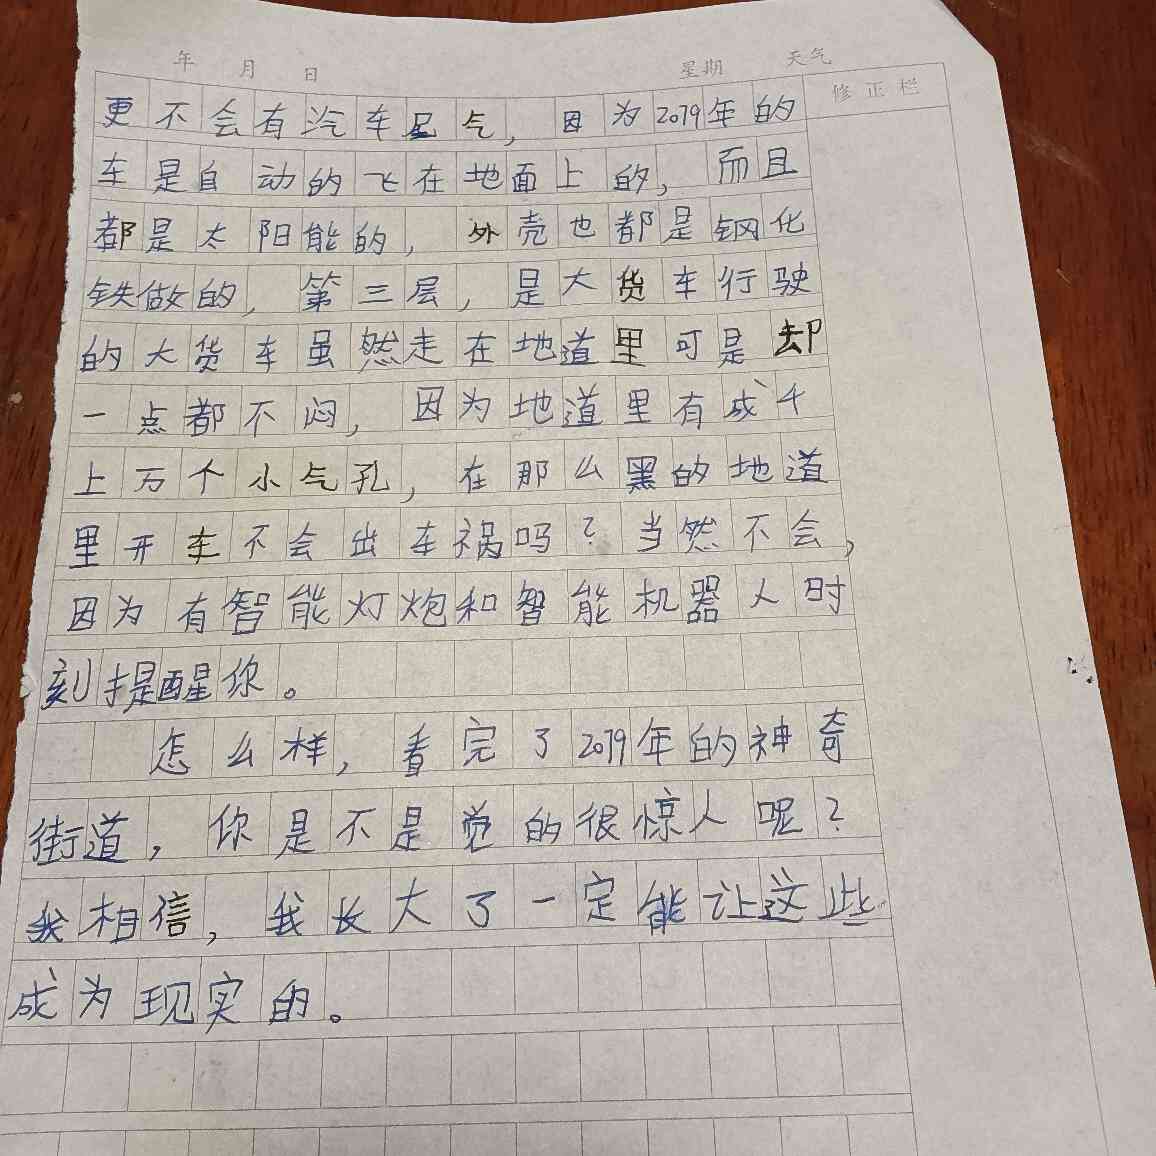 年 月 日 星期 天气
修正栏
更不会有汽车尾气，因为2079年的
车是自动的飞在地面上的，而且
都是太阳能的，外壳也都是钢化
铁做的，第三层，是大货车行驶
的大货车虽然走在地道里可是却
一点都不闷，因为地道里有成千
上万个小气孔，在那么黑的地道
里开车不会出车祸吗？当然不会，
因为有智能灯炮和智能机器人时
刻提醒你。
怎么样，看完了2079年的神奇
街道，你是不是觉的很惊人呢？
我相信，我长大了一定能让这些
成为现实的。